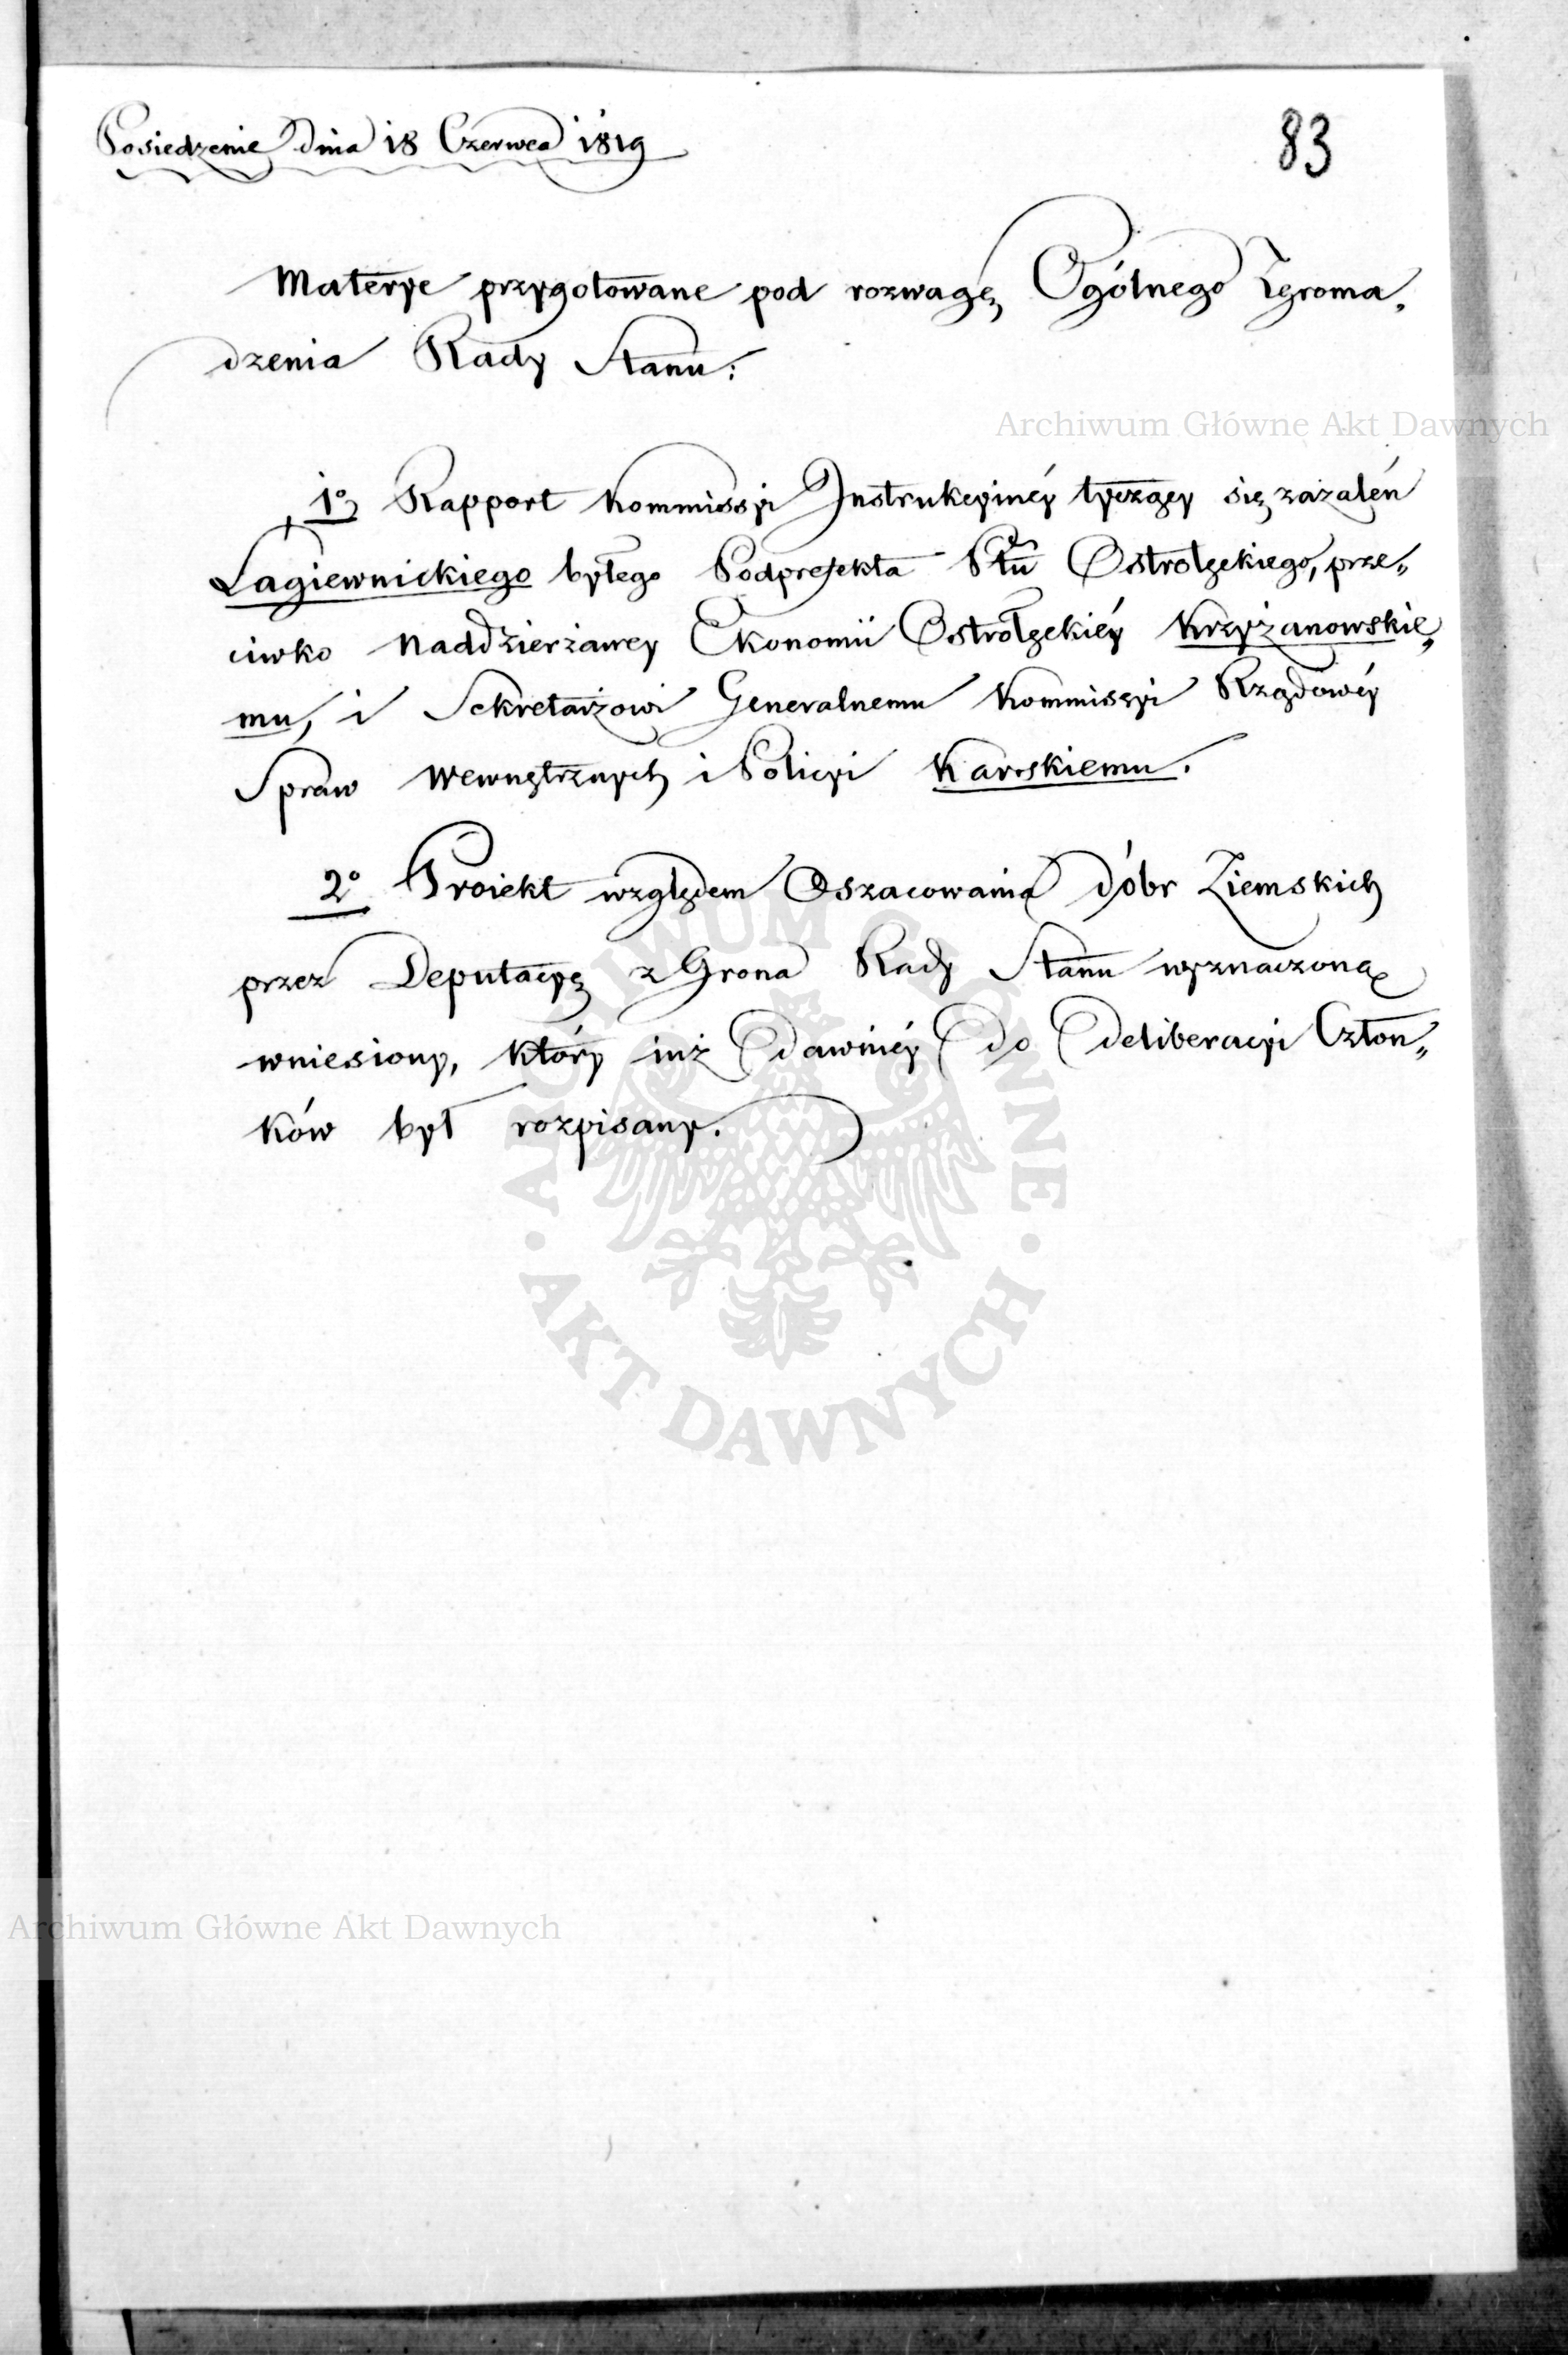 Posiedzenie dnia 18 Czerwca 1819
83
Materye przygotowane pod rozwagę Ogólnego Zgroma„
dzenia Rady Stanu:
Archiwum Główne Akt Dawnych
1o Rapport Kommissyi Instrukcyinéy tyczący się zażaleń
Łagiewnickiego byłego Podprefekta Pttu Ostrołęckiego, prze„
ciwko Naddzierżawcy Ekonomii Ostrołęckiéy Krzyżanowskie„
mu, i Sekretarzowi Generalnemu Kommissyi Rządowéy
Spraw Wewnętrznych i Policyi Karskiemu.
2o Proiekt względem Oszacowania dóbr Ziemskich
przez Deputacyę z Grona Rady Stanu wyznaczoną
wniesiony, który iuż dawniéy do deliberacyi Człon„
ków był rozpisany.
ARCHIWUM GŁÓWNE
AKT DAWNYCH
Archiwum Główne Akt Dawnych